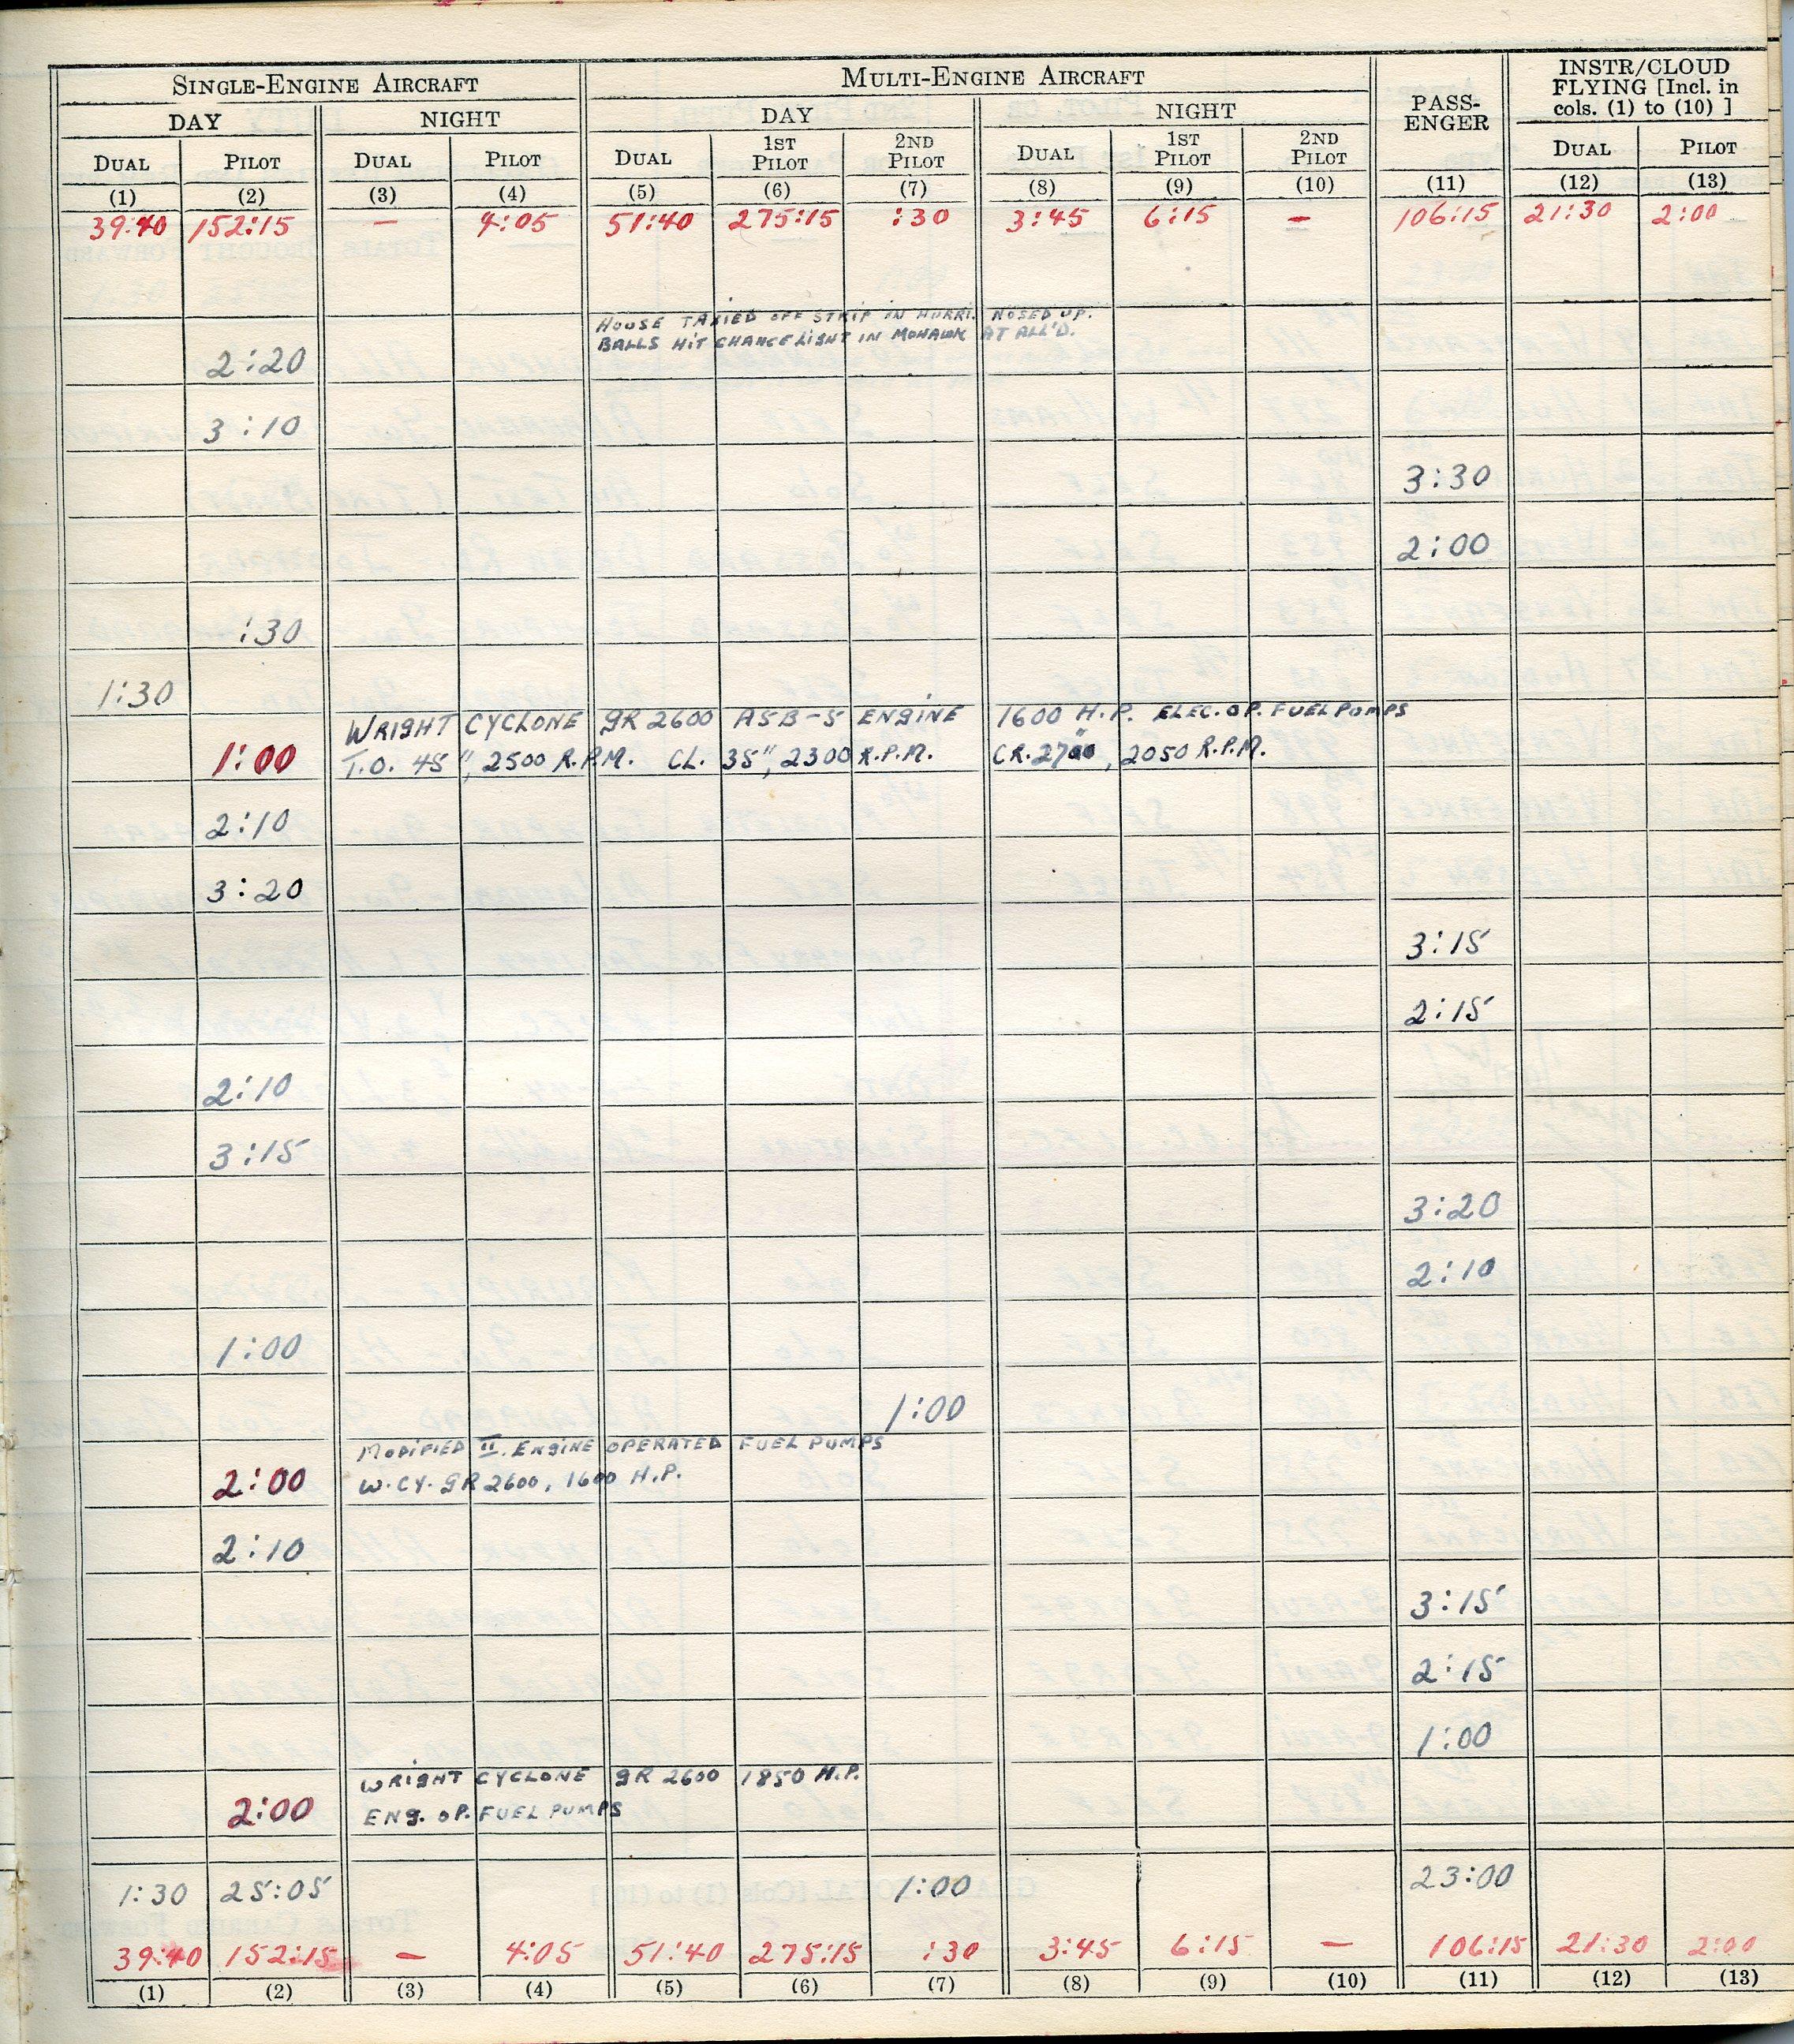 SINGLE-ENGINE AIRCRAFT MULTI-ENGINE AIRCRAFT PASS-ENGER INSTR/CLOUD FLYING [Incl. in cols. (1) to (10) ]
DAY NIGHT DAY NIGHT
DUAL PILOT DUAL PILOT DUAL 1ST PILOT 2ND PILOT DUAL 1ST PILOT 2ND PILOT DUAL PILOT
(1) (2) (3) (4) (5) (6) (7) (8) (9) (10) (11) (12) (13)
39:40 152:15 — 4:05 51:40 275:15 :30 3:45 6:15 — 106:15 21:30 2:00
HOUSE TAXIED OFF STRIP IN HURRI. NOSED UP.
BALLS HIT CHANCE LIGHT IN MOHAWK AT ALL'D.
2:20
3:10
3:30
2:00
:30
1:30
WRIGHT CYCLONE GR 2600 A5B-5 ENGINE 1600 H.P. ELEC. OP. FUEL PUMPS
1:00 T.O. 45", 2500 R.P.M. CL. 35", 2300 R.P.M. CR. 27", 2050 R.P.M.
2:10
3:20
3:15
2:15
2:10
3:15
3:20
2:10
1:00
1:00
MODIFIED II. ENGINE OPERATED FUEL PUMPS
2:00 W. CY. GR 2600, 1600 H.P.
2:10
3:15
2:15
1:00
WRIGHT CYCLONE GR 2600 1850 H.P.
2:00 ENG. OP. FUEL PUMPS
1:30 25:05 1:00 23:00
39:40 152:15 — 4:05 51:40 275:15 :30 3:45 6:15 — 106:15 21:30 2:00
(1) (2) (3) (4) (5) (6) (7) (8) (9) (10) (11) (12) (13)